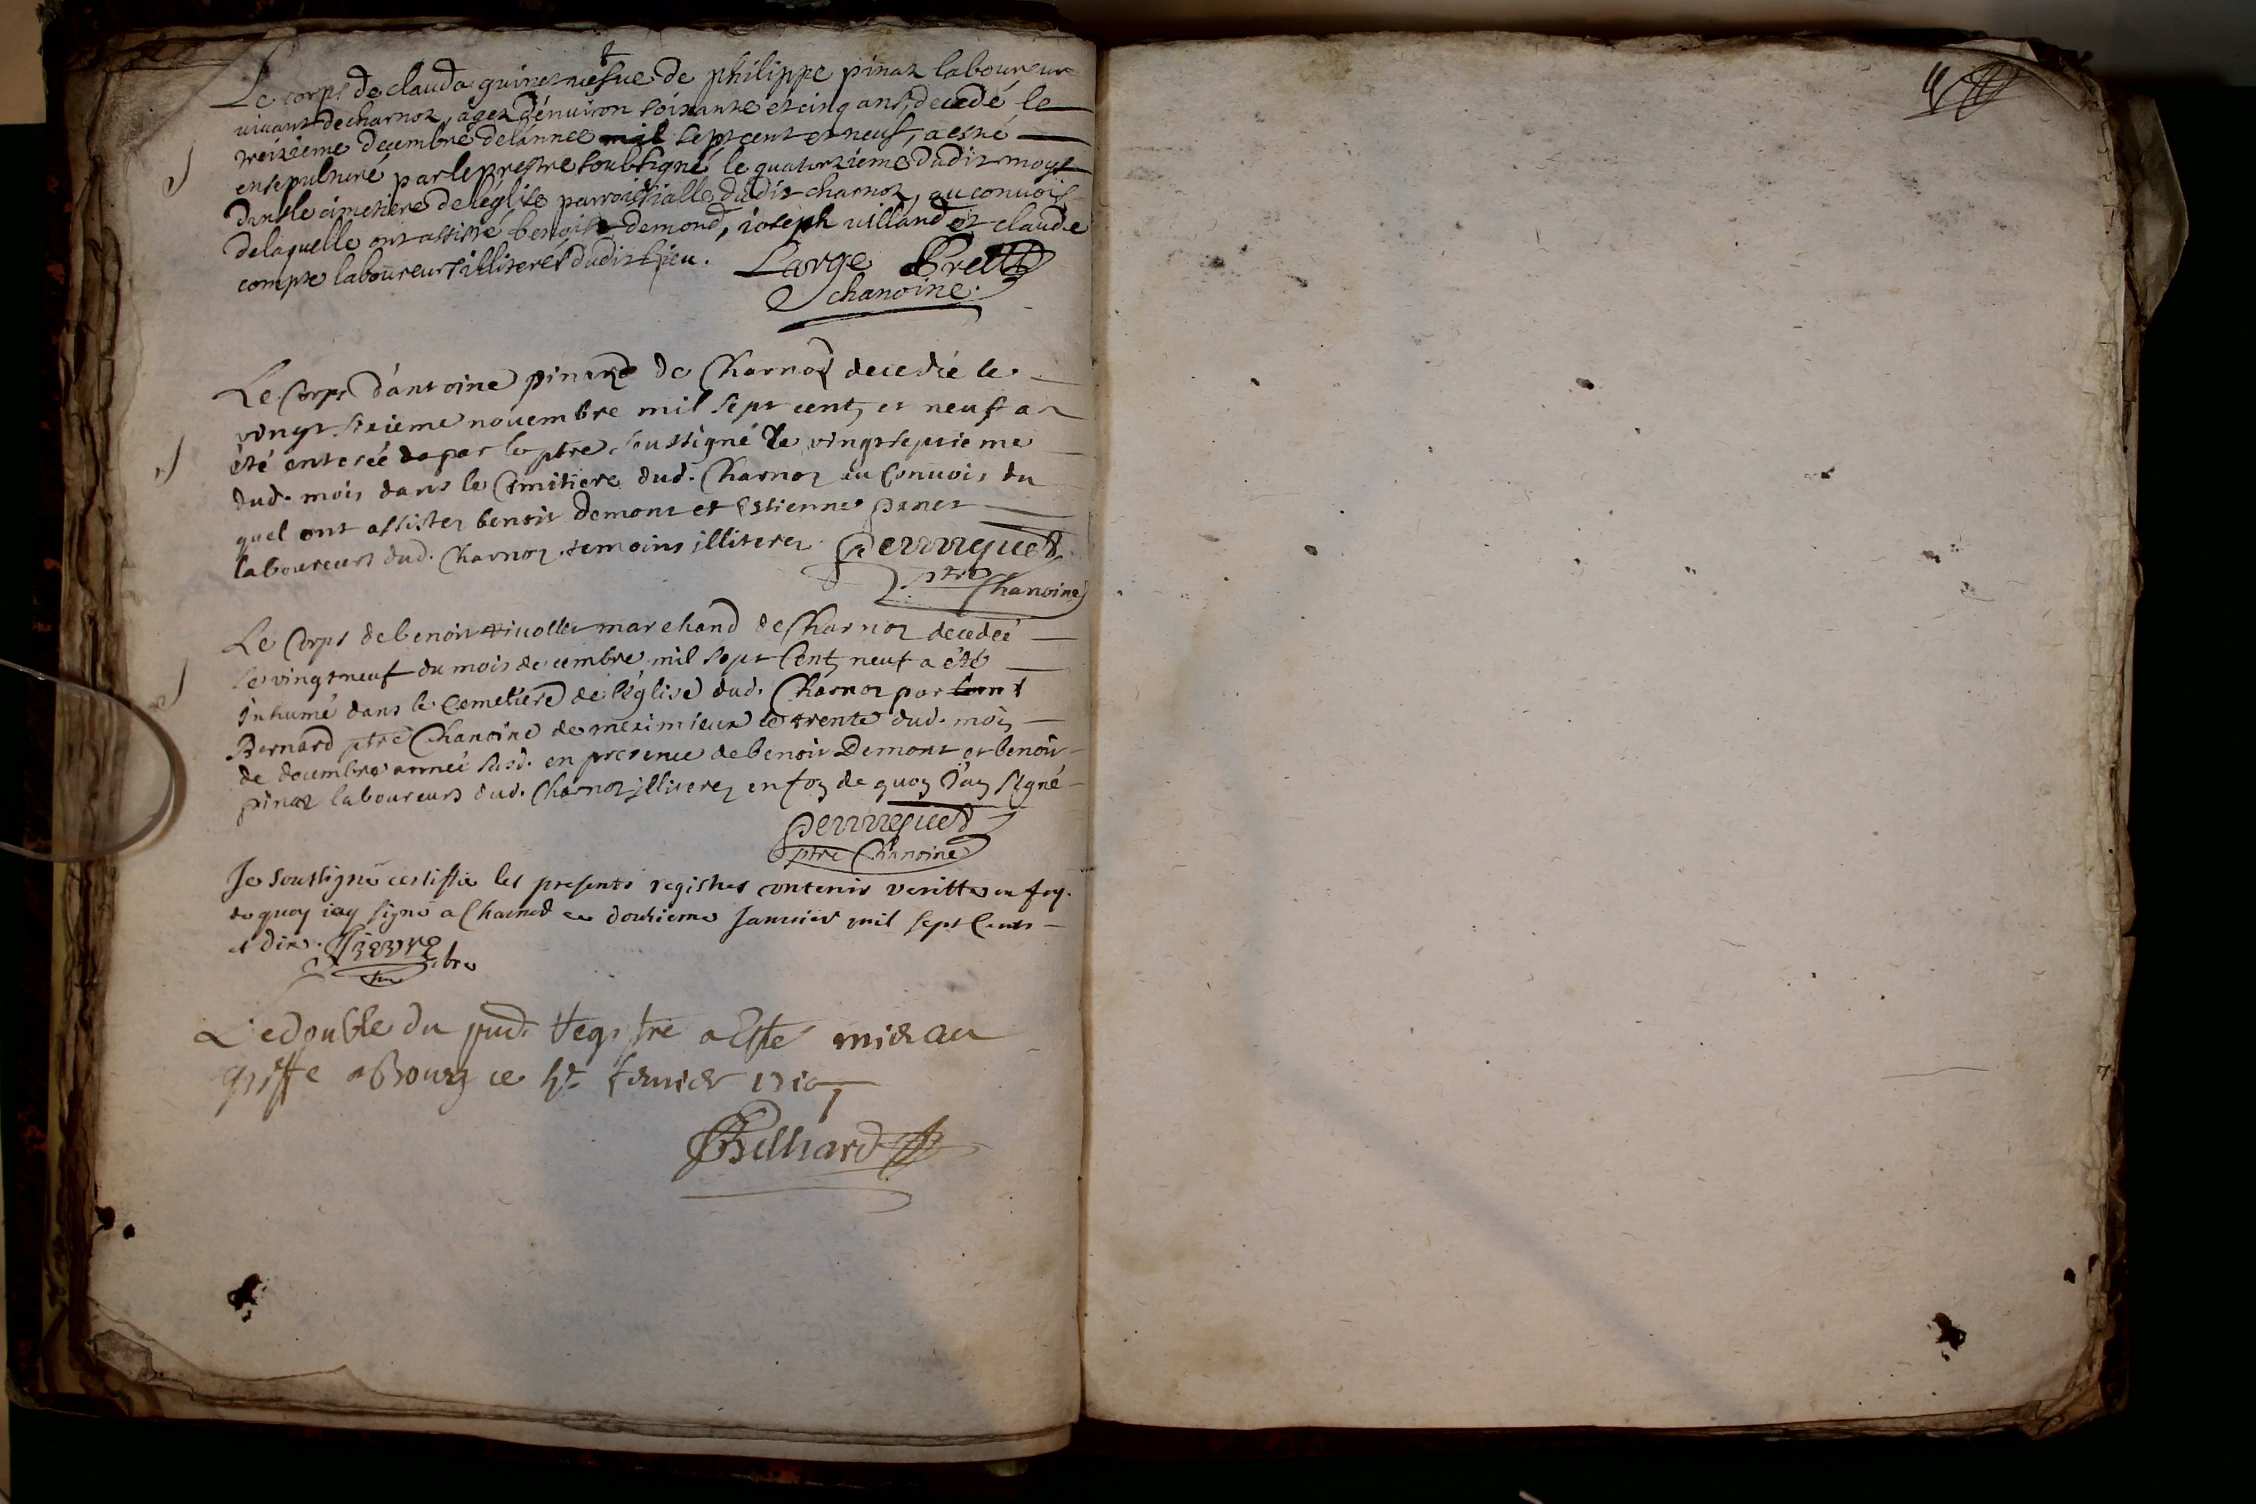 Le corps de clauda guinet vefue de philippe pinaz laboureur
uiuant de charnoz, agez d'enuiron soixante et cinq ans, decedé le
treizieme decembre de lannee mil sept cent et neuf, a esté
ensepulturé par le prestre soubsigné le quatorzieme dudit moys
dans le cimetiere de léglise parroissialle dudit charnoz, au conuois
de laquelle ont assisté benoist demond, ioseph uilland et claude
compte laboureurs illiterés dudit lieu. Large
chanoine.
Le Corps d'antoine pinard de Charnoz decedée le
vingt sixieme nouembre mil sept cent et neuf a
été enterée par le ptre soussigné le vingt septieme
dud. mois dans le Cimitiere dud. Charnoz au Conuois du
quel ont assistez benoit Demont et Estienne panet
laboureurs dud. Charnoz temoins illiterez Perrruquet
ptre Chanoine
Le Corps de benoit marchand de Charnoz decedéé
le vingt neuf du mois decembre mil sept Cent neuf a été
inhumé dans le Cemetiere de l'église dud. Charnoz par
Bernard ptre Chanoine de meximieux le trente dud. mois
de decembre année susd. en presence de benoit Demont et benoit
pinaz laboureurs dud. Charnoz illiterez en foy de quoy J'ay signé
Perrruquet
ptre Chanoine
Je soussigné certiffie les presents registres contenir veritté en foy
de quoy iay signé a Charnod ce douzieme Januier mil sept Cents
et dix.
Le double du registre a Esté mis au
greffe a Bourg ce feurier 1710
Billiard